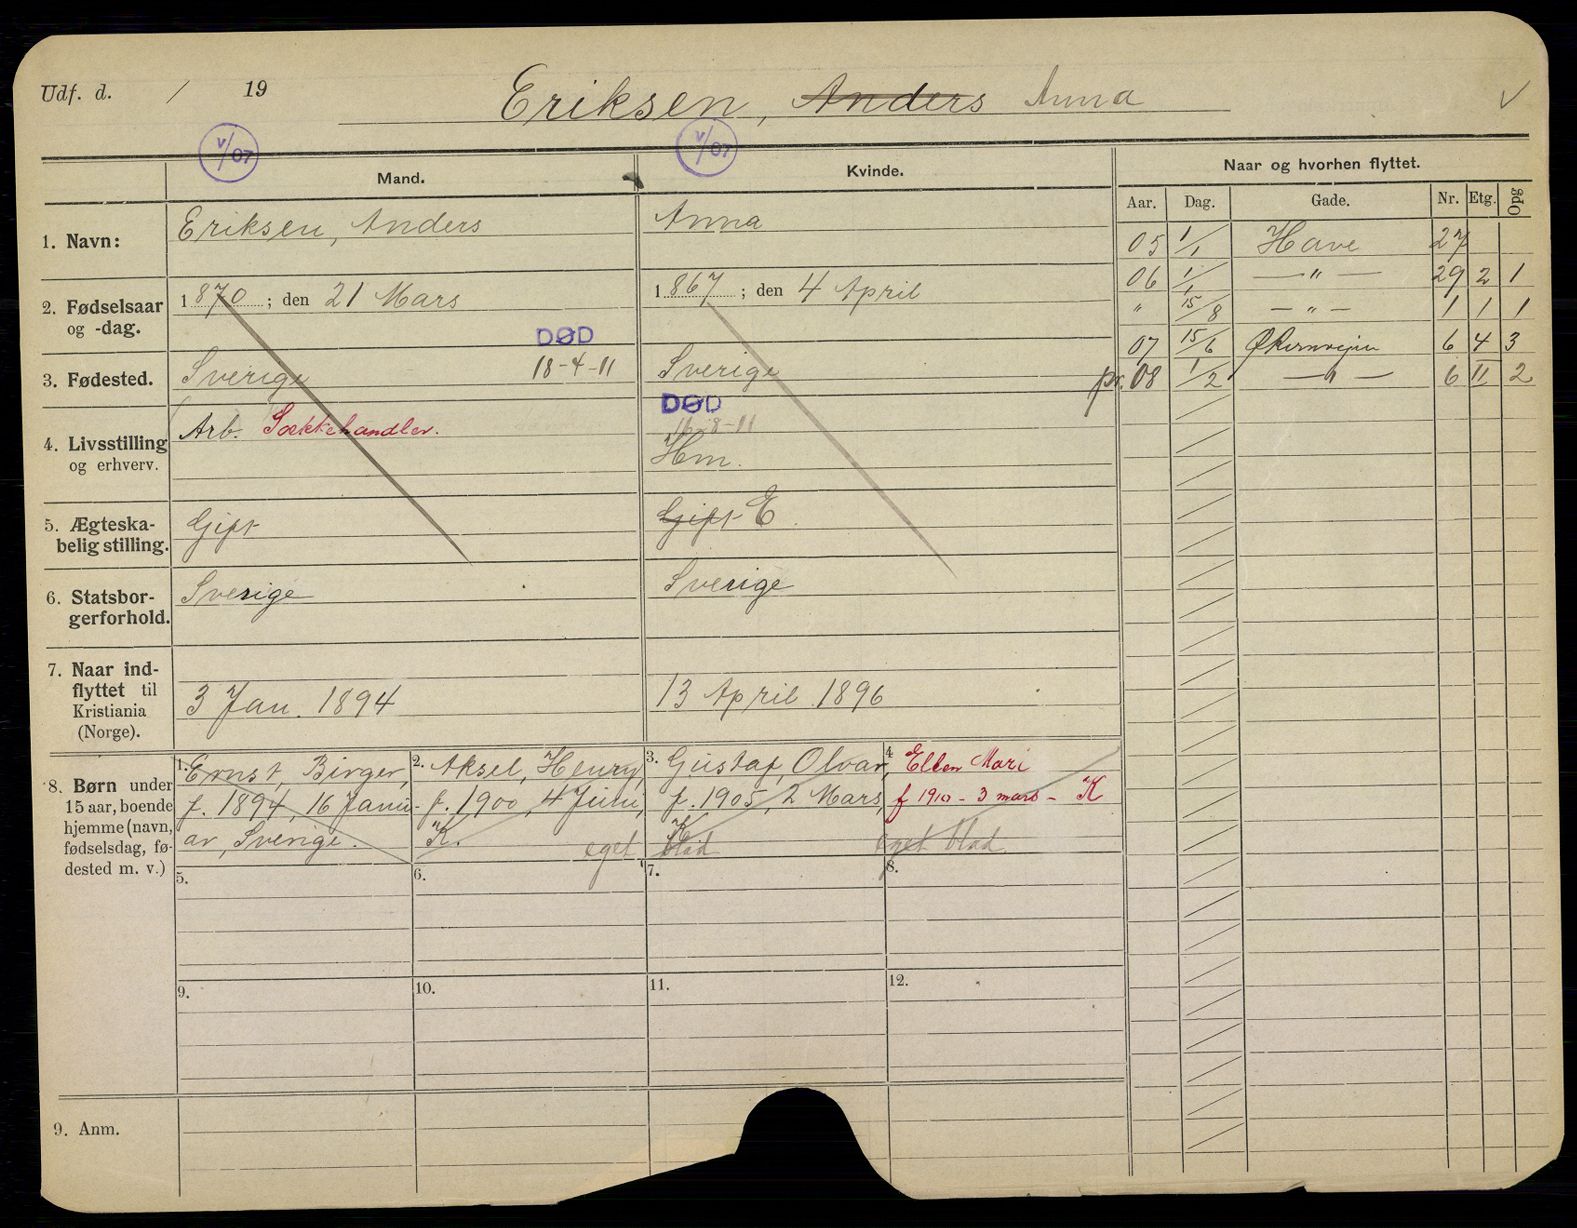 Udf. d. / 19 Eriksen, Anders Anna V
V/07 V/07
Mand. Kvinde. Naar og hvorhen flyttet.
Aar. Dag. Gade. Nr. Etg. Opg
1. Navn: Eriksen, Anders Anna
05 1/1 Have 27
06 1/1 — " — 29 2 1
2. Fødselsaar og -dag. 1870; den 21 Mars 1867; den 4 April
" 15/8 — " — 1 1 1
DØD
07 15/6 Økernvejen 6 4 3
3. Fødested. Sverige 18-4-11 Sverige
pr. 08 1/2 — " — 6 II 2
DØD
16-8-11
4. Livsstilling og erhverv. Arb. Sækkehandler. Hm.
5. Ægteskabelig stilling. Gift Gift E
6. Statsborgerforhold. Sverige Sverige
7. Naar indflyttet til Kristiania (Norge). 3 Jan. 1894 13 April 1896
8. Børn under 15 aar, boende hjemme (navn, fødselsdag, fødested m. v.)
1. Ernst, Birger,
f. 1894, 16 Janu-
ar, Sverige.
2. Aksel, Henry,
f. 1900, 4 Juni,
K.
eget blad
3. Gustaf, Olvar,
f. 1905, 2 Mars,
K
4. Ellen Mari
f 1910 - 3 mars - K
eget blad
5. 6. 7. 8.
9. 10. 11. 12.
9. Anm.